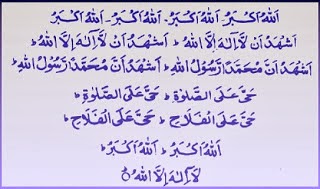 اَللهُ اَكْبَرُ ، اَللهُ اَكْبَرُ ، اَللهُ اَكْبَرُ ، اَللهُ اَكْبَرُ
اَشْهَدُ اَنْ لَّا اِلٰهَ اِلَّا اللهُ ؕ اَشْهَدُ اَنْ لَّا اِلٰهَ اِلَّا اللهُ ؕ
اَشْهَدُ اَنَّ مُحَمَّدًا رَّسُوْلُ اللهِ ؕ اَشْهَدُ اَنَّ مُحَمَّدًا رَّسُوْلُ اللهِ ؕ
حَیَّ عَلَی الصَّلٰوةِ ؕ حَیَّ عَلَی الصَّلٰوةِ ؕ
حَیَّ عَلَی الْفَلَاحِ ؕ حَیَّ عَلَی الْفَلَاحِ ؕ
اَللهُ اَكْبَرُ ؕ اَللهُ اَكْبَرُ ؕ
لَآ اِلٰهَ اِلَّا اللهُ ۝